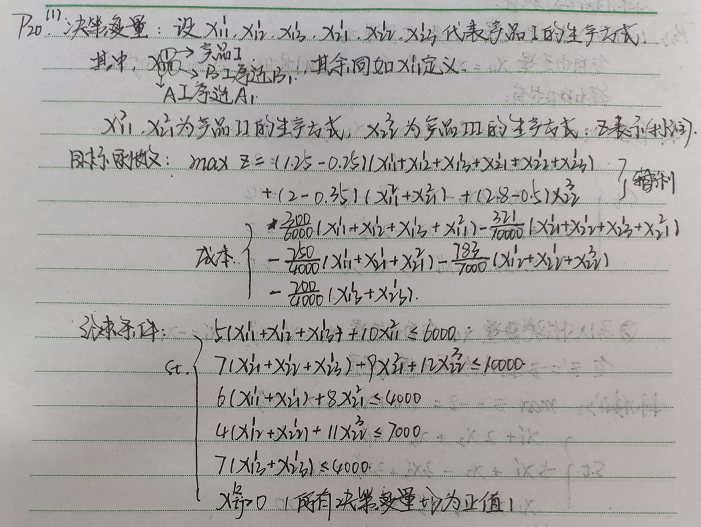 P20.(1). 决策变量：设 x₁₁¹、x₁₂¹、x₁₃¹、x₂₁¹、x₂₂¹、x₂₃¹ 代表产品I的生产方式
其中 x₁₁¹ → 产品I
→ B工序选B₁. 其余同如x₁₁¹定义.
A工序选A₁.
x₁₁²、x₂₁² 为产品II的生产方式, x₂₂³ 为产品III的生产方式; z表示利润.
目标函数: max z = (1.25-0.25)(x₁₁¹+x₁₂¹+x₁₃¹+x₂₁¹+x₂₂¹+x₂₃¹)
+(2-0.35)(x₁₁²+x₂₁²)+(2.8-0.5)x₂₂³
-300/6000(x₁₁¹+x₁₂¹+x₁₃¹+x₁₁²)-321/10000(x₂₁¹+x₂₂¹+x₂₃¹+x₂₁²)
成本 -250/4000(x₁₁¹+x₂₁¹+x₂₁²)-783/7000(x₁₂¹+x₂₂¹+x₂₂³)
-200/4000(x₁₃¹+x₂₃¹).
约束条件: 5(x₁₁¹+x₁₂¹+x₁₃¹)+10x₁₁²≤6000.
st. 7(x₂₁¹+x₂₂¹+x₂₃¹)+9x₂₁²+12x₂₂³≤10000.
6(x₁₁¹+x₂₁¹)+8x₂₁²≤4000
4(x₁₂¹+x₂₂¹)+11x₂₂³≤7000
7(x₁₃¹+x₂₃¹)≤4000.
xᵢⱼᵏ≥0 (所有决策变量均为正值)